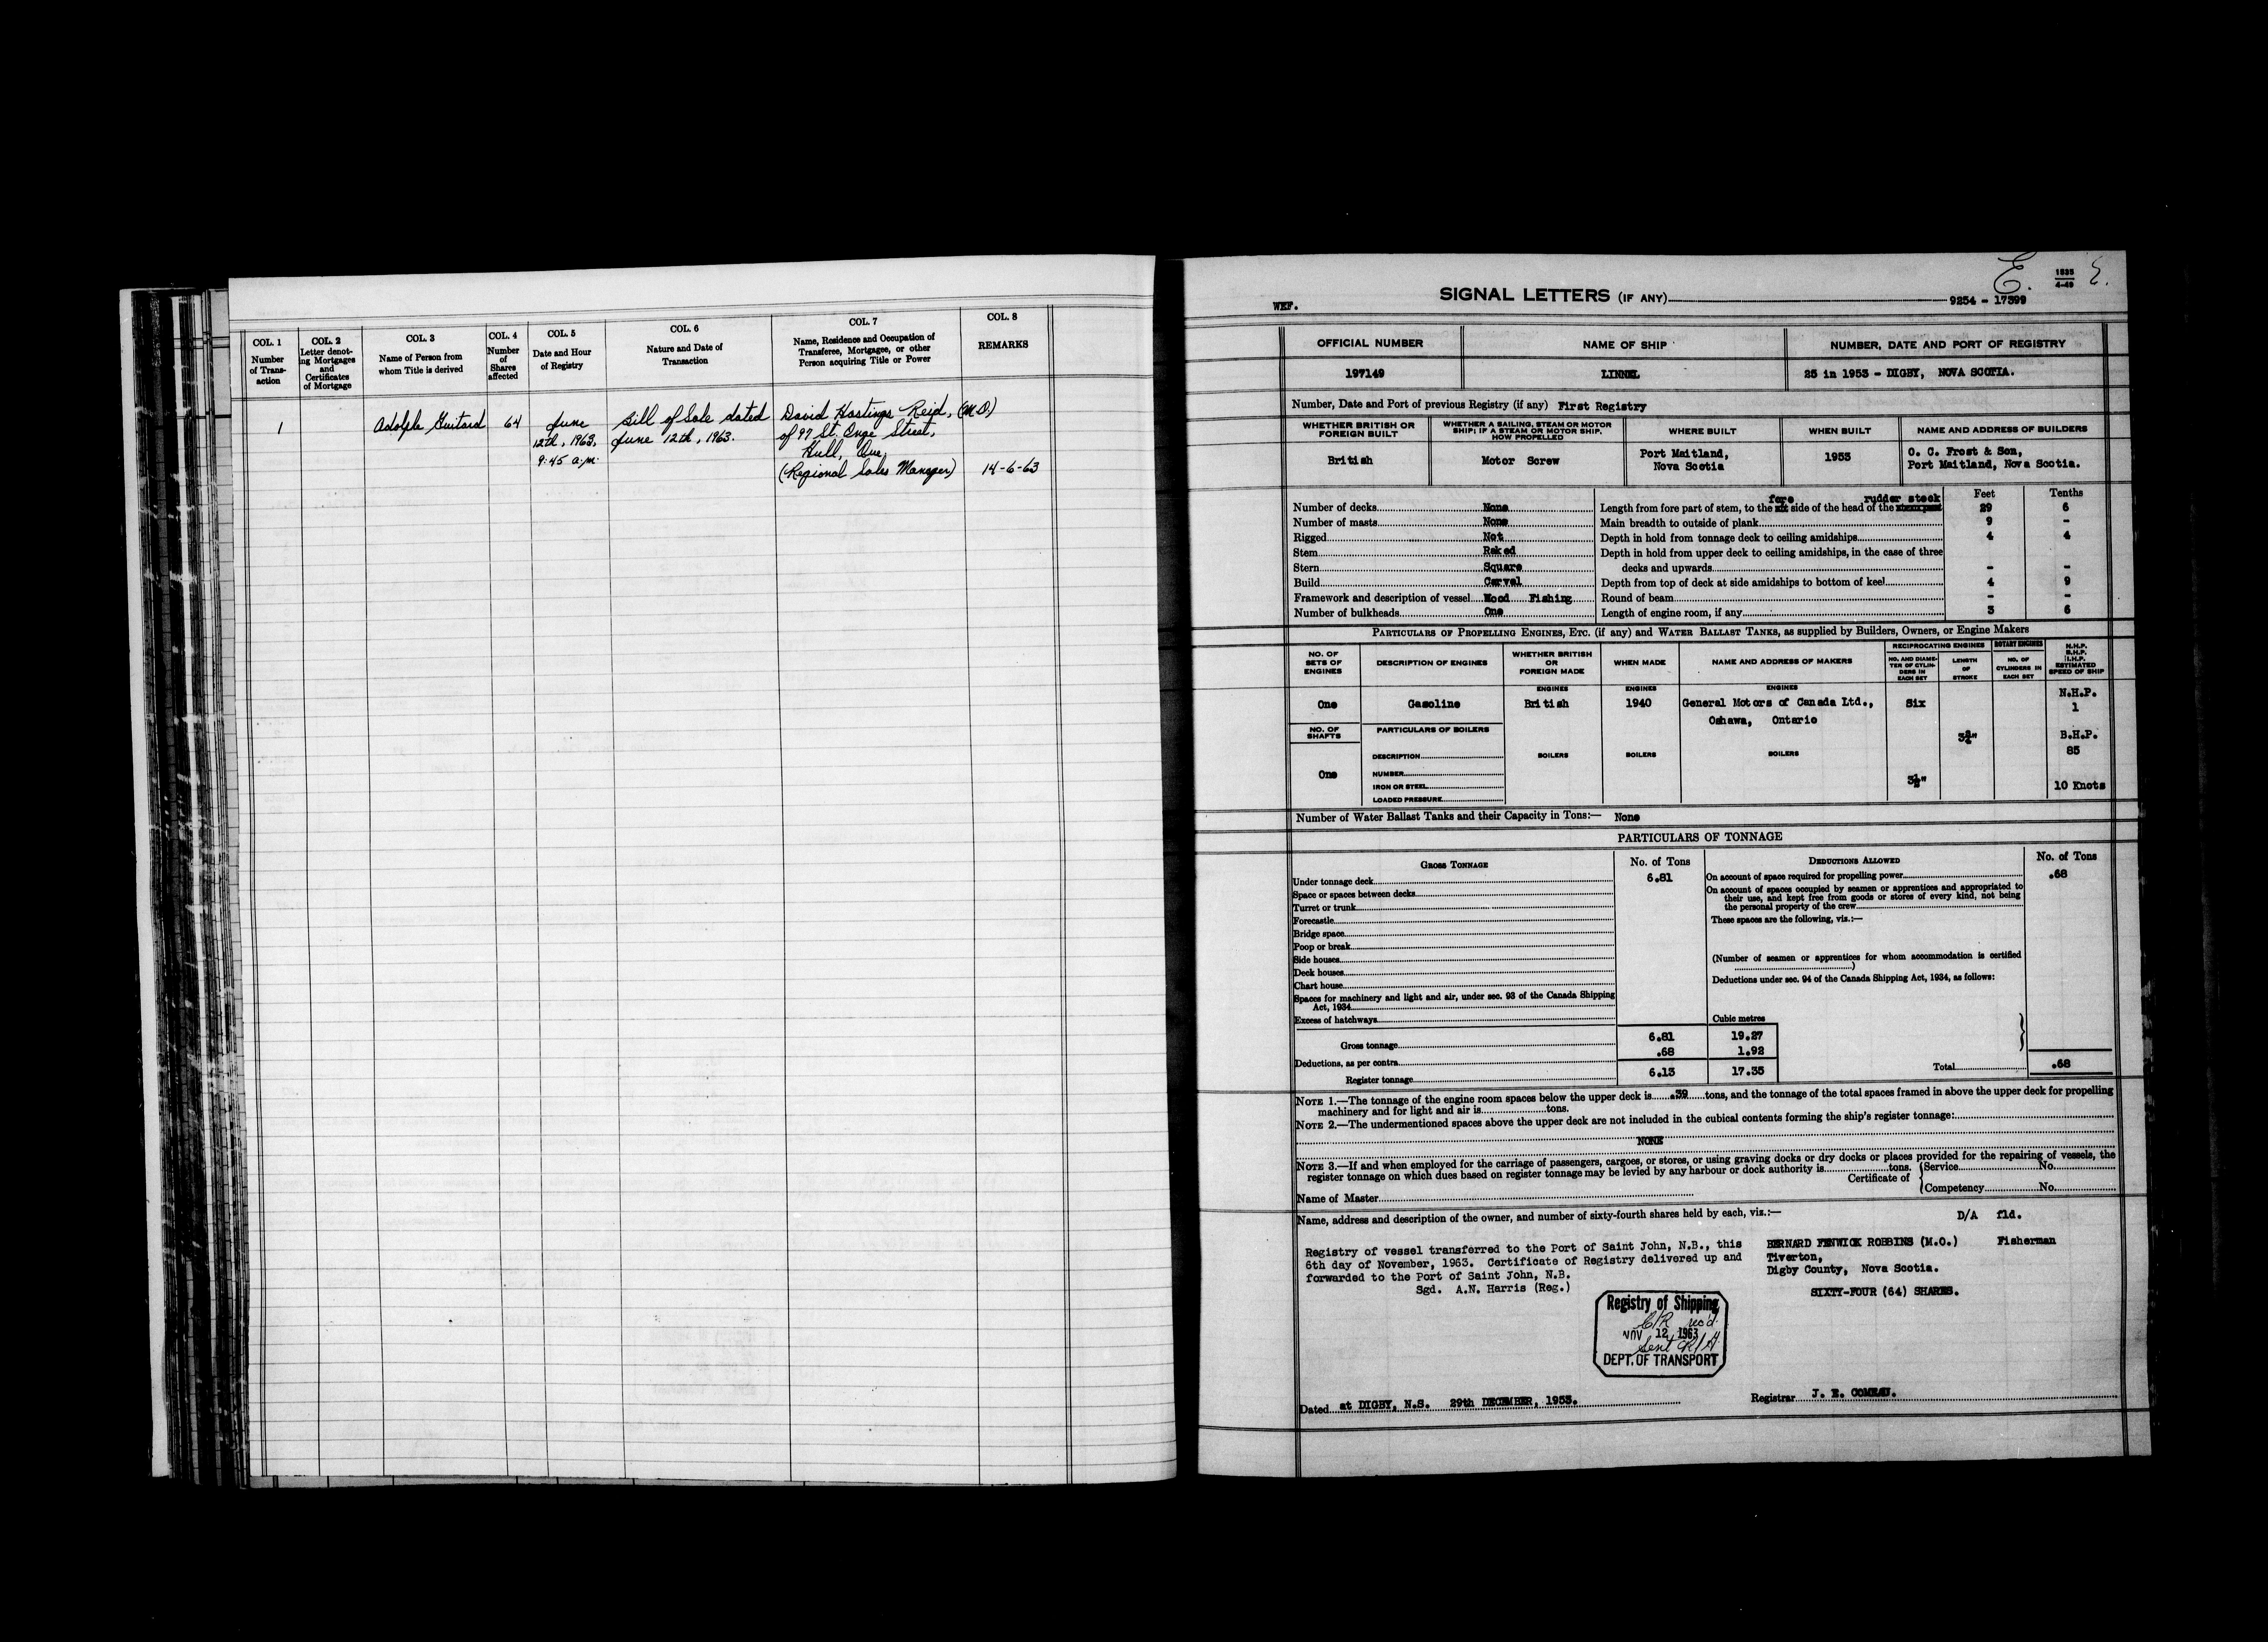 COL. 1
Number
of Trans-
action
COL. 2
Letter denot-
ing Mortgages
and
Certificates
of Mortgage
COL. 3
Name of Person from
whom Title is derived
COL. 4
Number
of
Shares
affected
COL. 5
Date and Hour
of Registry
COL. 6
Nature and Date of
Transaction
COL. 7
Name, Residence and Occupation of
Transferee, Mortgagee, or other
Person acquiring Title or Power
COL. 8
REMARKS
1
Adolphe Guitard
64
June
12th, 1963,
9:45 a.m.
Bill of Sale dated
June 12th, 1963.
David Hastings Reid, (M.O.)
of 97 St. Onge Street,
Hull, Que.
(Regional Sales Manager)
14-6-63
E.
1835
4-49
WEF.
SIGNAL LETTERS (IF ANY)
9254 - 17399
OFFICIAL NUMBER
NAME OF SHIP
NUMBER, DATE AND PORT OF REGISTRY
197149
LINNEL
25 in 1953 - DIGBY, NOVA SCOTIA.
Number, Date and Port of previous Registry (if any) First Registry
WHETHER BRITISH OR
FOREIGN BUILT
WHETHER A SAILING, STEAM OR MOTOR
SHIP; IF A STEAM OR MOTOR SHIP,
HOW PROPELLED
WHERE BUILT
WHEN BUILT
NAME AND ADDRESS OF BUILDERS
British
Motor Screw
Port Maitland,
Nova Scotia
1953
O. C. Frost & Son,
Port Maitland, Nova Scotia.
Feet Tenths
Number of decks None
Number of masts None
Rigged Not
Stem Raked
Stern Square
Build Carvel
Framework and description of vessel Wood Fishing
Number of bulkheads One
fore rudder stock
Length from fore part of stem, to the aft side of the head of the 29 6
Main breadth to outside of plank 9 -
Depth in hold from tonnage deck to ceiling amidships 4 4
Depth in hold from upper deck to ceiling amidships, in the case of three
decks and upwards - -
Depth from top of deck at side amidships to bottom of keel 4 9
Round of beam - -
Length of engine room, if any 3 6
PARTICULARS OF PROPELLING ENGINES, ETC. (if any) and WATER BALLAST TANKS, as supplied by Builders, Owners, or Engine Makers
NO. OF
SETS OF
ENGINES
DESCRIPTION OF ENGINES
WHETHER BRITISH
OR
FOREIGN MADE
WHEN MADE
NAME AND ADDRESS OF MAKERS
RECIPROCATING ENGINES
NO. AND DIAME-
TER OF CYLIN-
DERS IN
EACH SET
LENGTH
OF
STROKE
ROTARY ENGINES
NO. OF
CYLINDERS IN
EACH SET
N.H.P.
B.H.P.
I.H.P.
ESTIMATED
SPEED OF SHIP
ENGINES
ENGINES
ENGINES
One
Gasoline
British
1940
General Motors of Canada Ltd.,
Oshawa, Ontario
Six
N.H.P.
1
NO. OF
SHAFTS
PARTICULARS OF BOILERS
3¾"
B.H.P.
85
DESCRIPTION
BOILERS
BOILERS
BOILERS
One
NUMBER
IRON OR STEEL
LOADED PRESSURE
3½"
10 Knots
Number of Water Ballast Tanks and their Capacity in Tons:— None
PARTICULARS OF TONNAGE
GROSS TONNAGE
No. of Tons
DEDUCTIONS ALLOWED
No. of Tons
Under tonnage deck 6.81
Space or spaces between decks
Turret or trunk
Forecastle
Bridge space
Poop or break
Side houses
Deck houses
Chart house
Spaces for machinery and light and air, under sec. 93 of the Canada Shipping
Act, 1934
Excess of hatchways
On account of space required for propelling power .68
On account of spaces occupied by seamen or apprentices and appropriated to
their use, and kept free from goods or stores of every kind, not being
the personal property of the crew
These spaces are the following, viz.:—
(Number of seamen or apprentices for whom accommodation is certified
)
Deductions under sec. 94 of the Canada Shipping Act, 1934, as follows:
Cubic metres
Gross tonnage 6.81 19.27
Deductions, as per contra .68 1.92
Register tonnage 6.13 17.35
Total .68
NOTE 1.—The tonnage of the engine room spaces below the upper deck is .39 tons, and the tonnage of the total spaces framed in above the upper deck for propelling
machinery and for light and air is tons.
NOTE 2.—The undermentioned spaces above the upper deck are not included in the cubical contents forming the ship's register tonnage:
NONE
NOTE 3.—If and when employed for the carriage of passengers, cargoes, or stores, or using graving docks or dry docks or places provided for the repairing of vessels, the
register tonnage on which dues based on register tonnage may be levied by any harbour or dock authority is tons.
Certificate of
Service No.
Competency No.
Name of Master
Name, address and description of the owner, and number of sixty-fourth shares held by each, viz.:—
D/A fld.
Registry of vessel transferred to the Port of Saint John, N.B., this
6th day of November, 1963. Certificate of Registry delivered up and
forwarded to the Port of Saint John, N.B.
Sgd. A.N. Harris (Reg.)
BERNARD FENWICK ROBBINS (M.O.) Fisherman
Tiverton,
Digby County, Nova Scotia.
SIXTY-FOUR (64) SHARES.
Registry of Shipping
C/R rec'd.
NOV 12 1963
Sent
DEPT. OF TRANSPORT
Dated at DIGBY, N.S. 29th DECEMBER, 1953.
Registrar J. E. COMEAU.